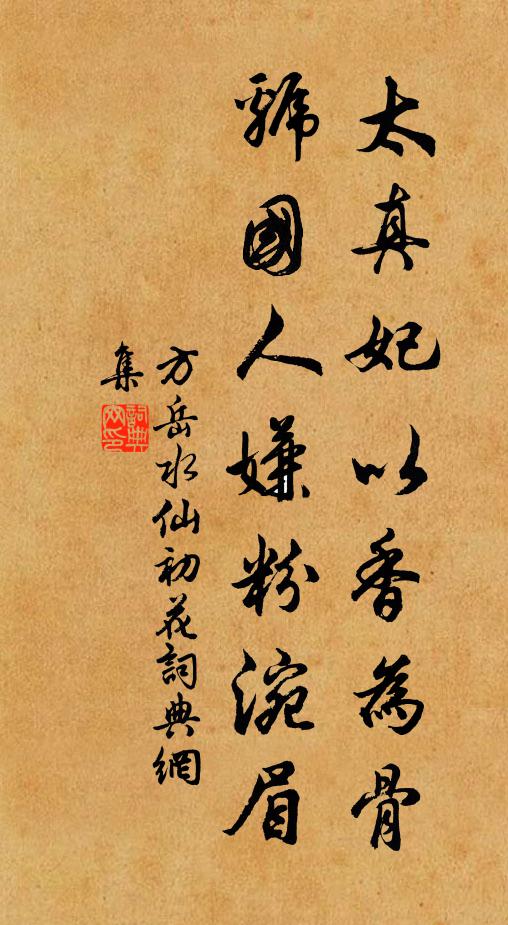 太真妃以香為骨
虢國人嫌粉涴眉
方岳水仙初花詞典網
集
詞典網印